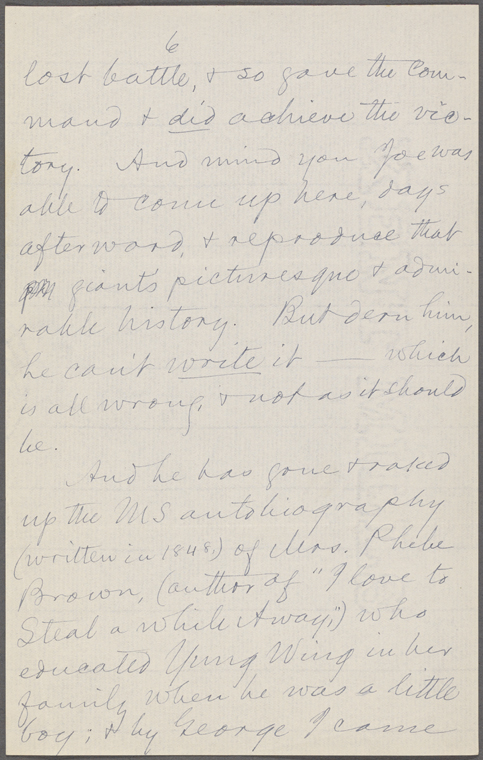 6
lost battle, & so gave the com-
mand & did achieve the vic-
tory. And mind you Joe was
able to come up here, days
afterward, & reproduce that
giant's picturesque & admi-
rable history. But dern him,
he can't write it — which
is all wrong, & not as it should
be.
And he has gone & raked
up the MS autobiography
(written in 1848,) of Mrs. Phebe
Brown, (author of "I love to
Steal a while Away,") who
educated Yung Wing in her
family when he was a little
boy; & by George I came